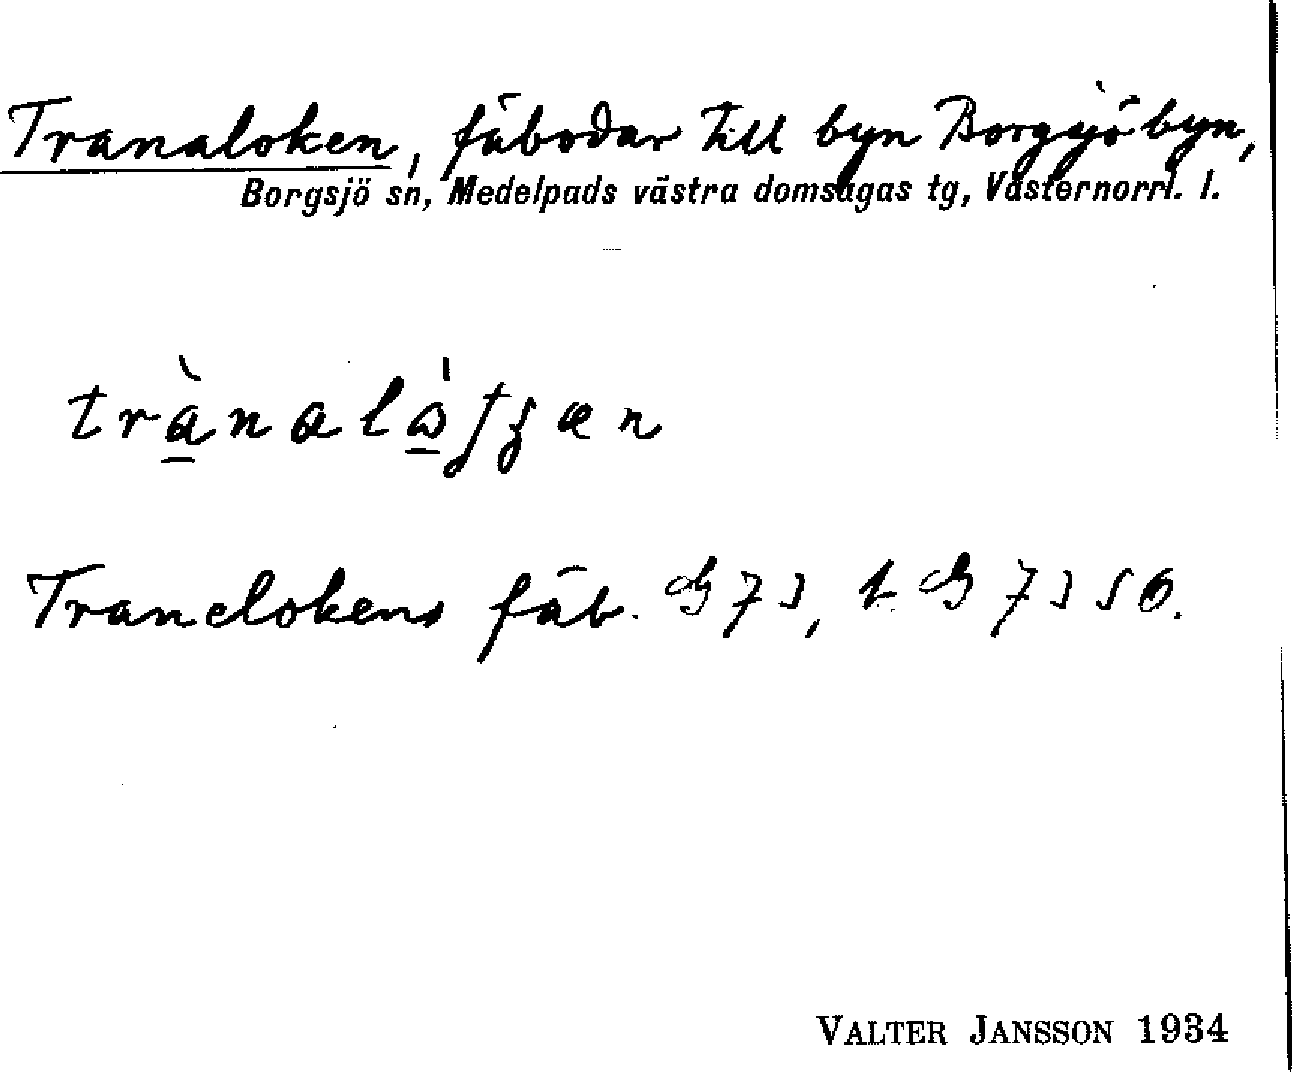 Tranaloken, fäbodar till byn Borgsjöbyn,
Borgsjö sn, Medelpads västra domsagas tg, Västernorrl. l.
Tranelokens fäb.
VALTER JANSSON 1934